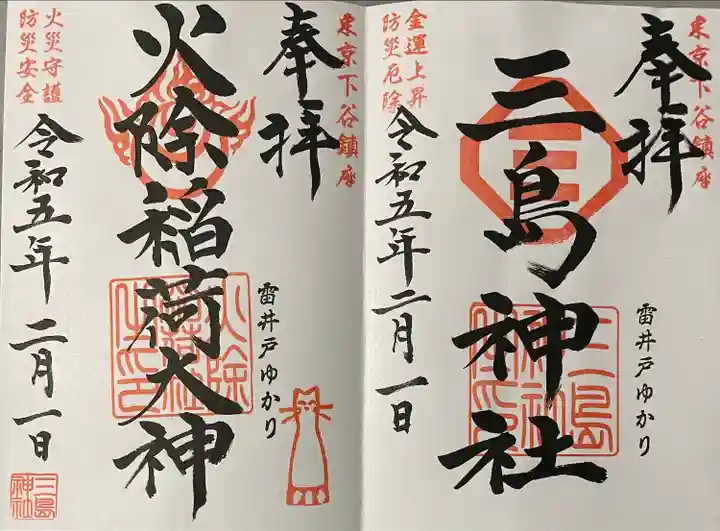 東京下谷鎮座
奉拝
三島神社
雷井戸ゆかり
金運上昇
防災厄除
令和五年二月一日
三島
神社
之印
東京下谷鎮座
奉拝
火除稲荷大神
雷井戸ゆかり
火災守護
防災安全
令和五年二月一日
火除
稲荷社
之印
三島
神社